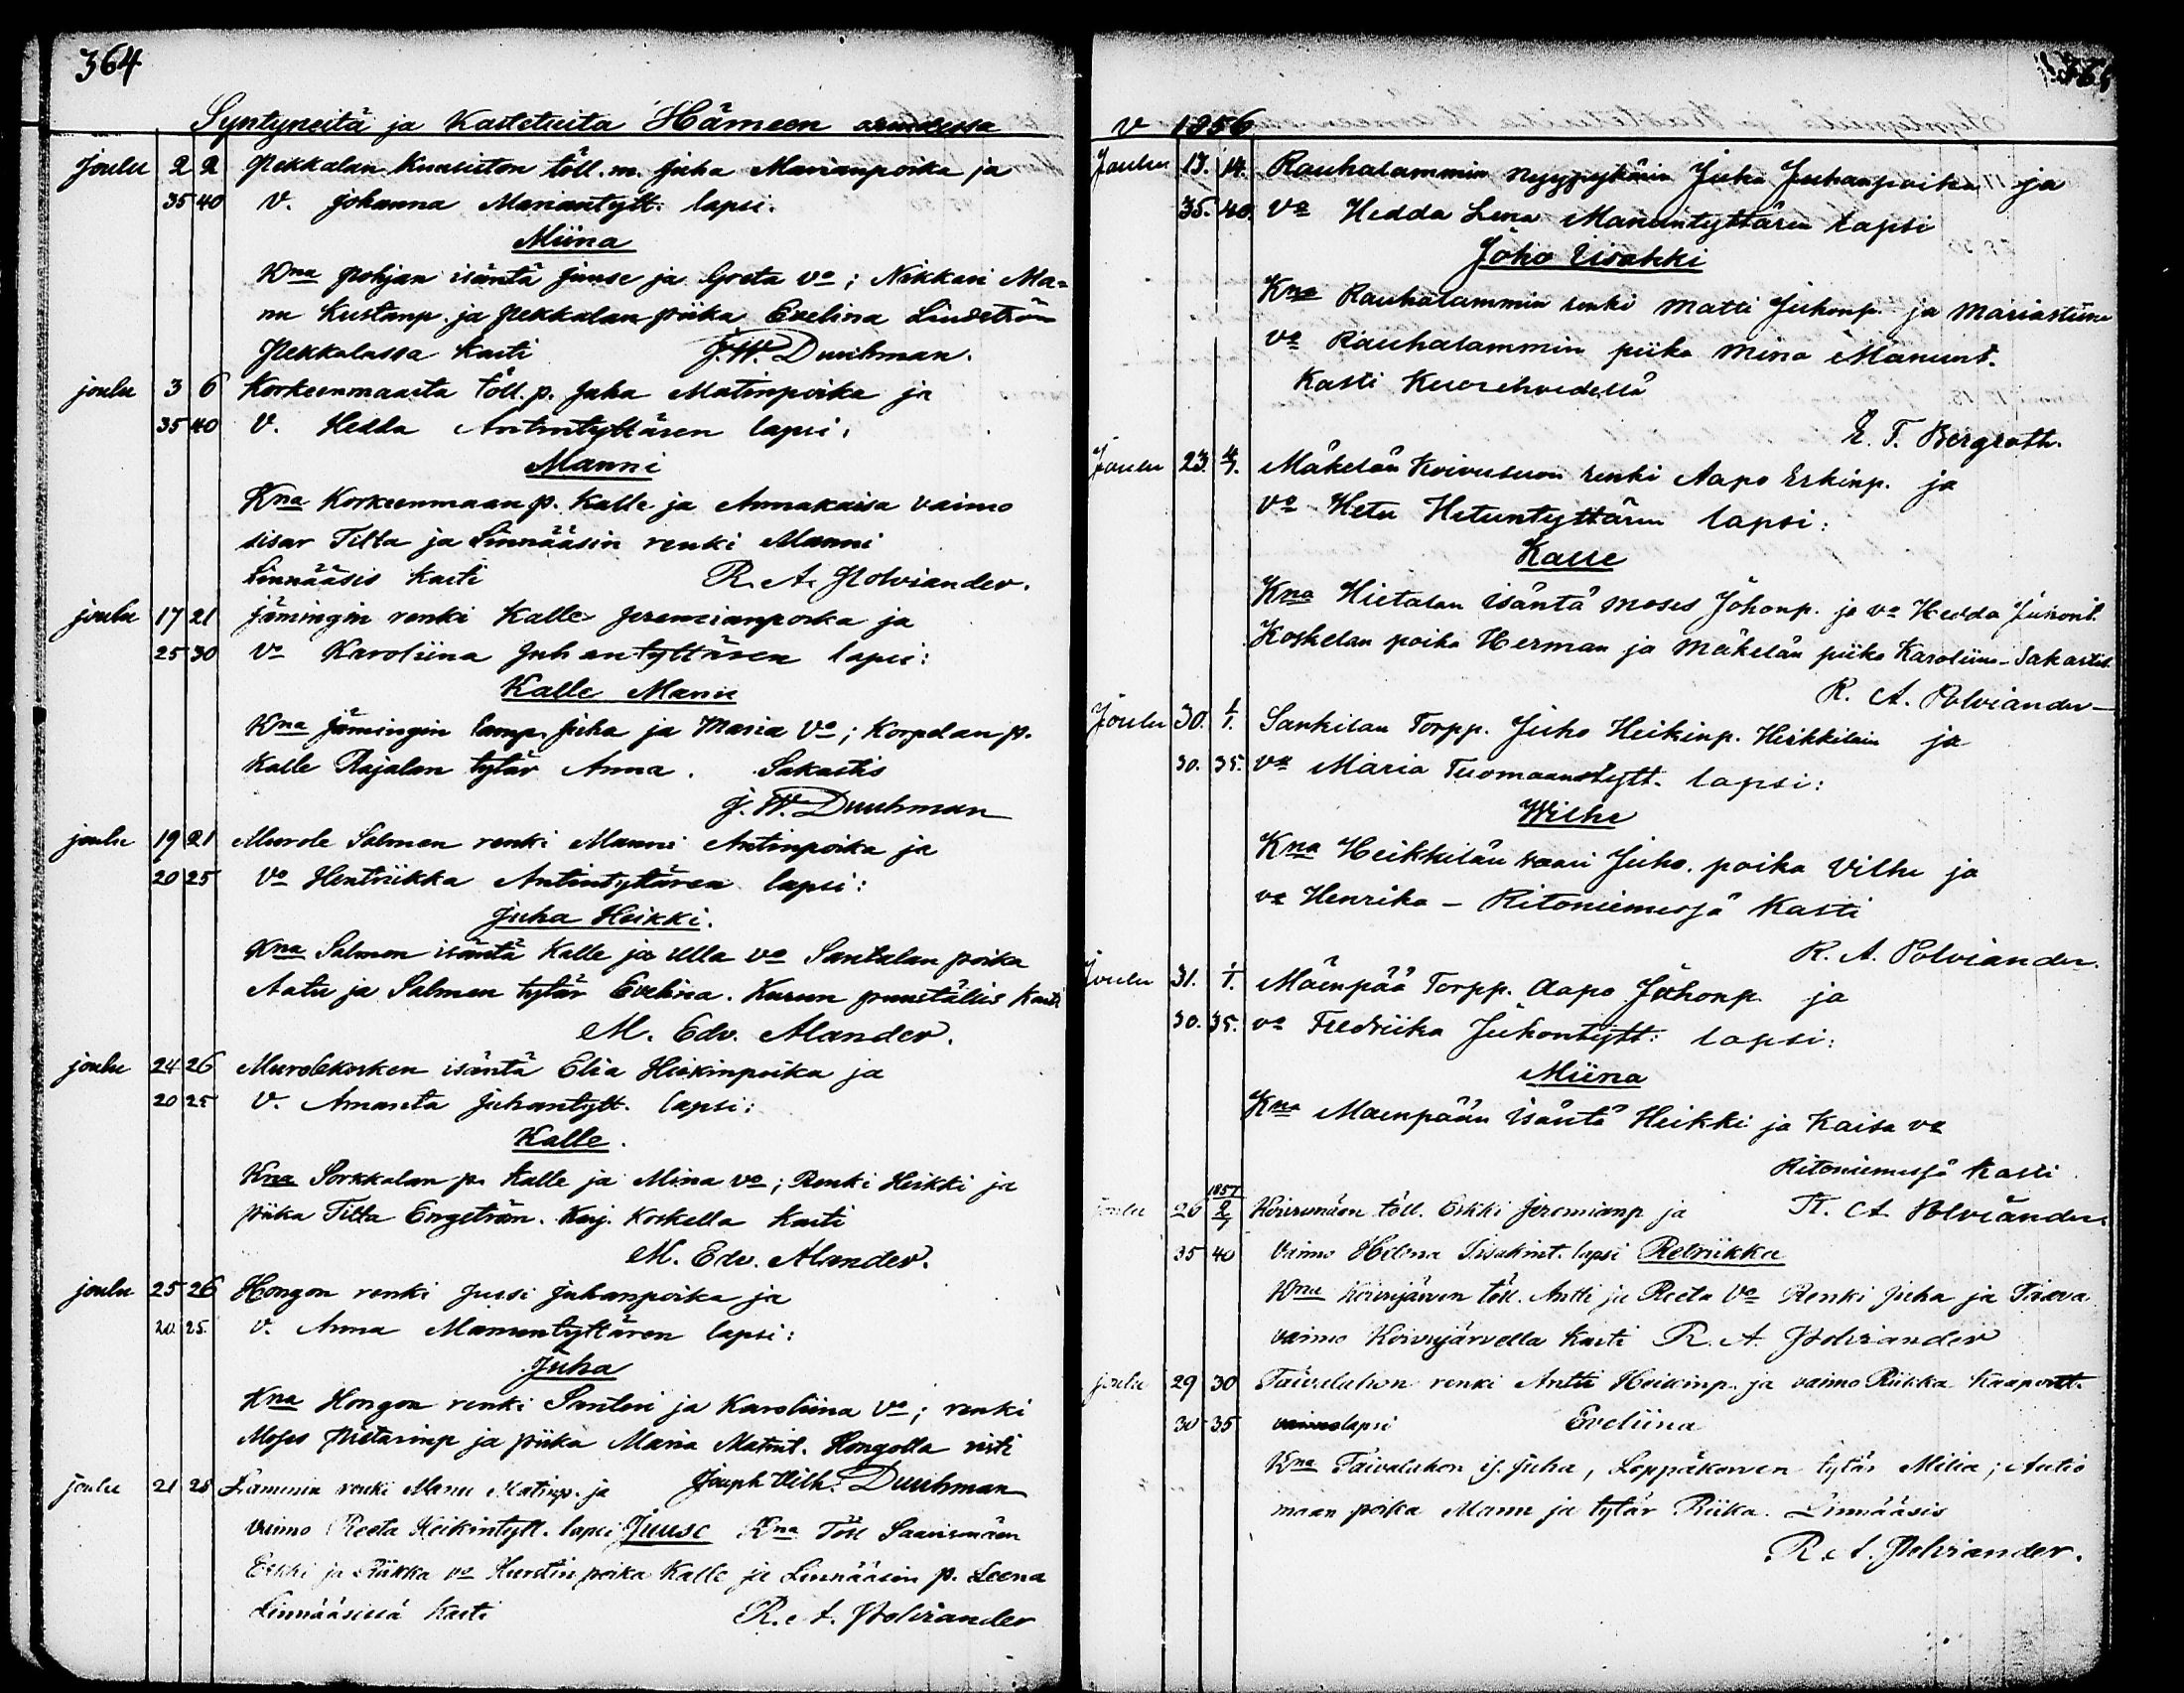 364
Syntyneitä ja Kastetuita Hämeen
joulu 2 2 Pekkalan Kuusiston töll. m. Juha Marianpoika ja
35 40 V. Johanna Mariantytt. lapsi.
Miina
Kna Pohjan isäntä Juuse ja Greta vo; Nikkari Ma=
nu Kustanp. ja Pekkalan piika Evelina Lindström
Pekkalassa kasti J. W. Duuhman.
joulu 3 6 Korkeenmaasta töll. p. Juha Matinpoika ja
35 40 V. Hedda Antintyttären lapsi.
Manni
Kna Korkeenmaan p. Kalle ja Annakaisa vaimo
sisar Tilta ja Linnääsin renki Manni
Linnääsis kasti R. A. Polviander.
joulu 17 21 Jämingin renki Kalle Jeremianpoika ja
25 30 vo Karoliina Juhantyttären lapsi:
Kalle Manu
Kna Jämingin lamp. Juha ja Maria vo; Korpelan p.
Kalle Rajalan tytär Anna. Sakastis
J. W. Duuhman
joulu 19 21 Murole Salmen renki Manni Antinpoika ja
20 25 vo Hentriikka Antintytären lapsi:
Juha Heikki.
Kna Salmen isäntä Kalle ja Ulla vo Santalan poika
Aatu ja Salmen tytär Evelina. Kurun puuställis kasti
M. Edv. Alander.
joulu 24 26 Murolekosken isäntä Elia Heikinpoika ja
20 25 V. Amanta Juhantytt. lapsi:
Kalle.
Kna Sorkkalan p. Kalle ja Mina vo; Renki Heikki ja
piika Tilta Engström. Koskella kasti
M. Edv. Alander.
joulu 25 26 Hongon renki Jussi Juhanpoika ja
20. 25. V. Anna Manuntyttären lapsi:
Juha
Kna Hongon renki Santeri ja Karoliina vo; renki
Moses Pietarinp ja piika Maria Matint. Hongolla risti
joulu 21 25 Lammin renki Manu Matinp. ja Joseph Vilh. Duuhman
vaimo Reeta Heikintytt. lapsi Juuse Kna Töll Saarismäen
Erkki ja Riikka vo Hurstin poika Kalle ja Linnääsin p. Leena
Linnääsissä kasti R. A. Polviander
v 1856
Joulu 13. 14. Rauhalammin Juha Juhanpoika ja
35. 40. vo Hedda Lena Manuntyttären lapsi
Joho Iisakki
Kna Rauhalammin renki Matti Juhonp. ja Mariastiina
vo Rauhalammin piika Mina Manunt.
Kasti Kuorehvedellä
E. T. Bergroth.
Joulu 23. 4/1. Mäkelän Koivusuon renki Aapo Erkinp. ja
vo Hetu Hetuntyttären lapsi:
Kalle
Kna Hietalan isäntä Moses Johonp. ja vo Hedda Juhont.
Koskelan poika Herman ja Mäkelän piika Karoliina – Sakastis
R. A. Polviander –
Joulu 30. 1/1. Sankilan Torpp. Juho Heikinp. Heikkilain ja
30. 35. vo Maria Tuomaanstytt. lapsi:
Wilhe
Kna Heikkilän vaari Juho. poika Vilhe ja
vo Henrika – Ritoniemessä Kasti
R. A. Polviander.
Joulu 31. 1/1. Mäenpää Torpp. Aapo Juhonp. ja
30. 35. vo Fredriika Juhontytt: lapsi:
Miina
Kna Mäenpään isäntä Heikki ja Kaisa vo
Ritoniemessä kasti
1857
joulu 26 2/1 Koivumäen töll. Erkki Jeremianp ja R. A. Polviander.
35 40 vaimo Helena Iisakint. lapsi Retriikka
Kna Koivujärven töll. Antti ja Reeta vo Renki Juha ja
vaimo Koivujärvella kasti R. A. Polviander
joulu 29 30 Taivalahon renki Antti Heikinp. ja vaimo Riikka Kaapontt.
30 35 vaimo lapsi Eveliina
Kna Taivalahon is. Juha, Leppäkorven tytär Milia; Autio
maan poika Manu ja tytär Riika. Linnääsis
R. A. Polviander.